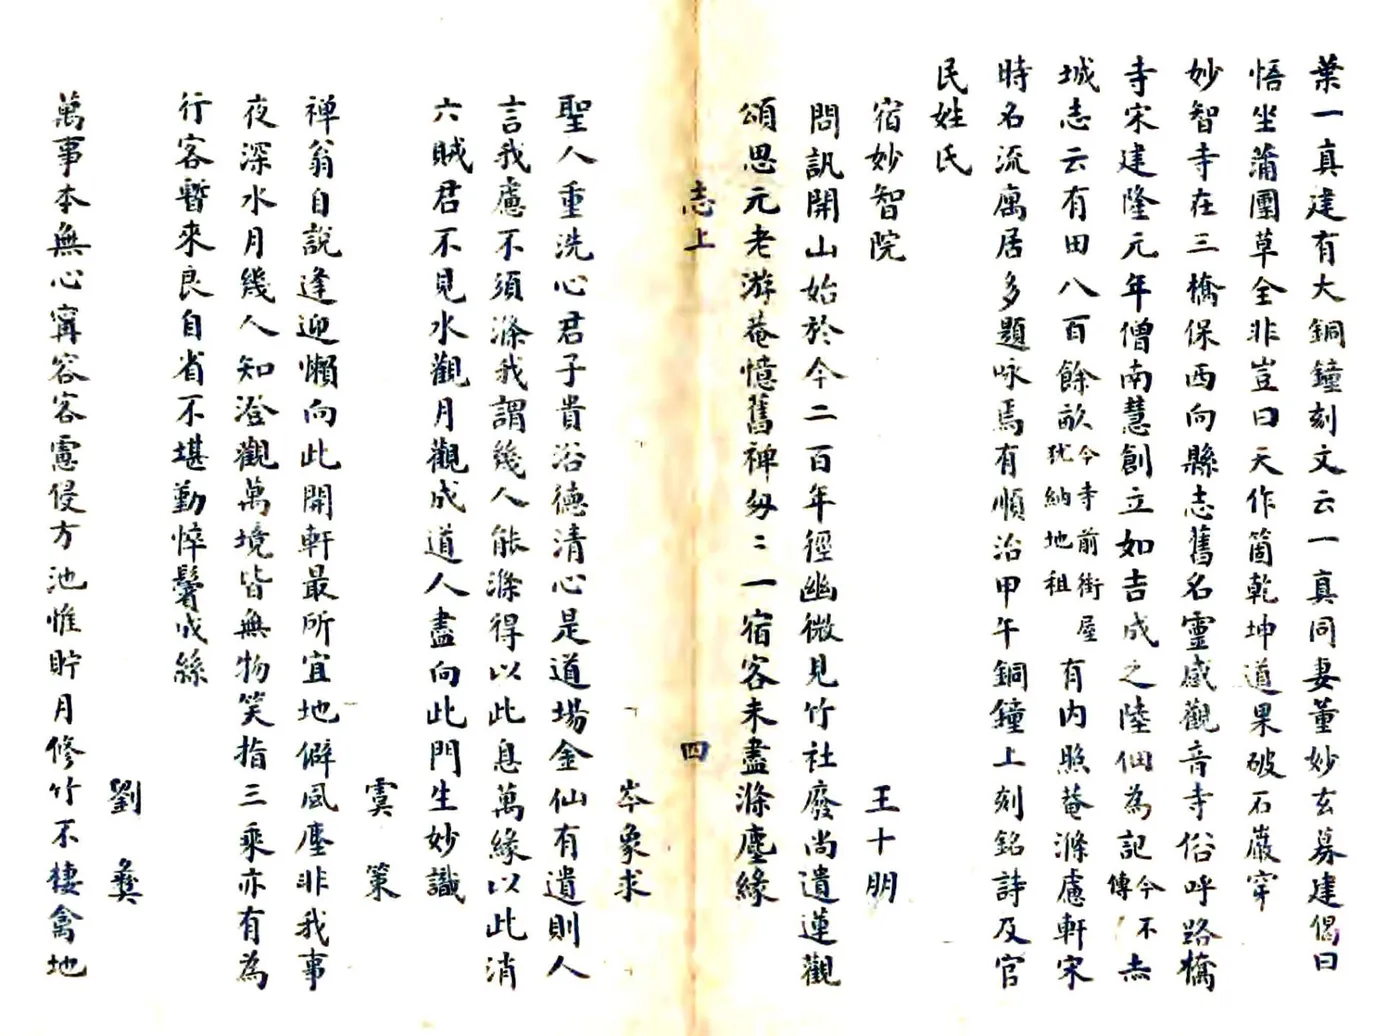 葉一真建有大銅鐘刻文云一真同妻董妙玄募建偈曰
悟坐蒲團草全非豈曰天作箇乾坤道果破石巖穿
妙智寺在三橋保西向縣志舊名靈感觀音寺俗呼路橋
寺宋建隆元年僧南慧創立如吉成之陸佃為記今不傳赤
城志云有田八百餘畝今寺前街屋猶納地租有內照菴滌慮軒宋
時名流寓居多題咏焉有順治甲午銅鐘上刻銘詩及官
民姓氏
宿妙智院 王十朋
問訊開山始於今二百年徑幽微見竹社廢尚遺蓮觀
頌思元老游菴憶舊禅匆〻一宿客未盡滌塵緣
志上 四
岑象求
聖人重洗心君子貴浴德清心是道場金仙有遺則人
言我慮不須滌我謂幾人能滌得以此息萬緣以此消
六賊君不見水觀月觀成道人盡向此門生妙識
虞策
禅翁自說逢迎懶向此開軒最所宜地僻風塵非我事
夜深水月幾人知澄觀萬境皆無物笑指三乘亦有為
行客暫來良自省不堪勤悴鬢成絲
劉彝
萬事本無心寧容客慮侵方池惟貯月修竹不棲禽地